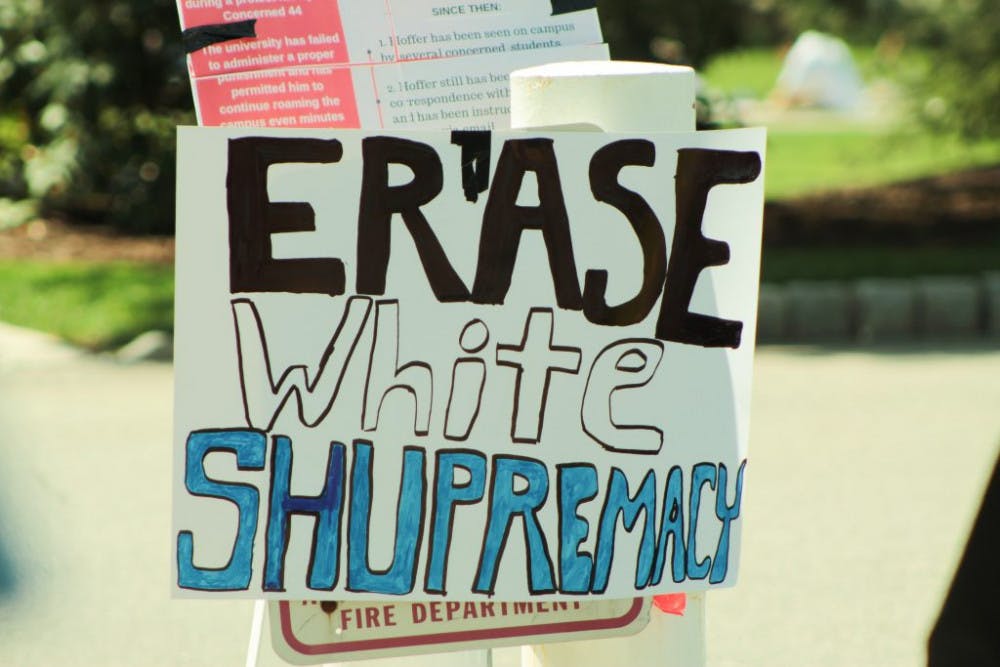 during a
Concerned 44
The university has failed
to administer a proper
punishment and has
permitted him to
continue roaming the
campus even minutes
SINCE THEN:
1. Hoffer has been seen on campus
by several concerned students
2. Hoffer still has
correspondence with
and has been
via email
ERASE
White
SHUPREMACY
FIRE DEPARTMENT